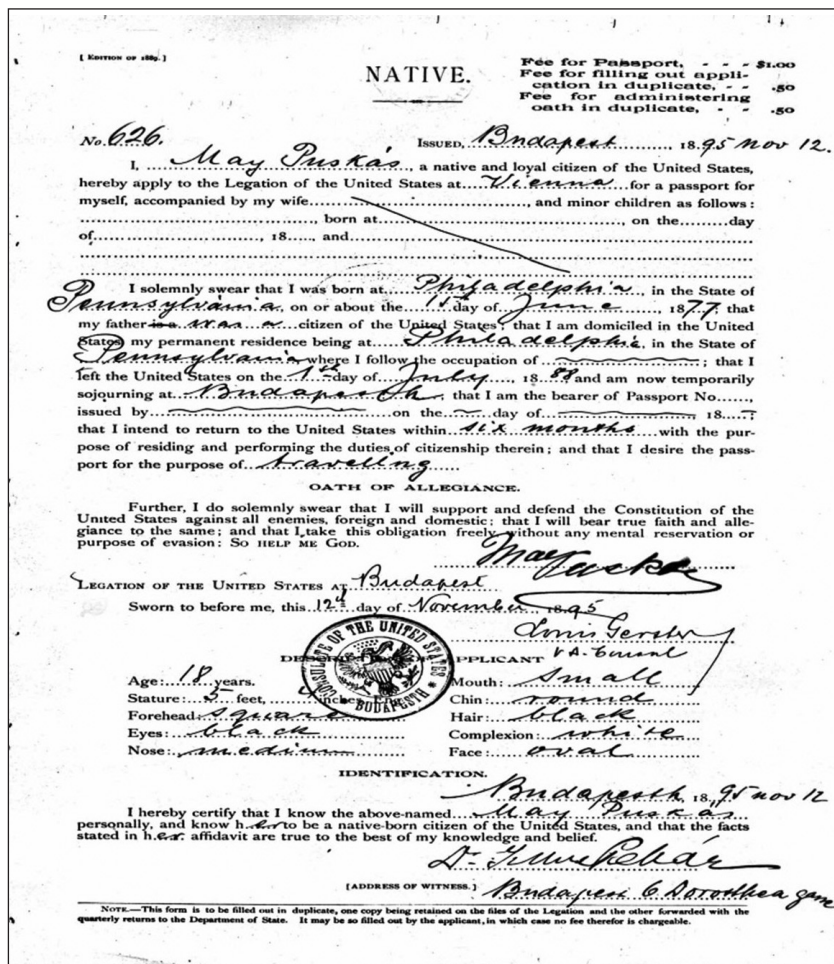 [ EDITION OF 1889. ]
NATIVE.
Fee for Passport, - - - $1.00
Fee for filling out appli-
cation in duplicate, - - .50
Fee for administering
oath in duplicate, - - .50
No. 626. ISSUED, Budapest, 1895 nov 12.
I, May Puskás, a native and loyal citizen of the United States,
hereby apply to the Legation of the United States at Vienna for a passport for
myself, accompanied by my wife, and minor children as follows:
, born at, on the day
of, 18, and
I solemnly swear that I was born at Philadelphia, in the State of
Pennsylvania, on or about the 15 day of June, 1877; that
my father is a was a citizen of the United States; that I am domiciled in the United
States, my permanent residence being at Philadelphia, in the State of
Pennsylvania where I follow the occupation of ; that I
left the United States on the 1st day of July, 1888 and am now temporarily
sojourning at Budapesth, that I am the bearer of Passport No.,
issued by on the day of 18 ;
that I intend to return to the United States within six months with the pur-
pose of residing and performing the duties of citizenship therein; and that I desire the pass-
port for the purpose of travelling
OATH OF ALLEGIANCE.
Further, I do solemnly swear that I will support and defend the Constitution of the
United States against all enemies, foreign and domestic; that I will bear true faith and alle-
giance to the same; and that I take this obligation freely, without any mental reservation or
purpose of evasion: SO HELP ME GOD.
May Puskás
LEGATION OF THE UNITED STATES AT Budapest
Sworn to before me, this 12th day of November 1895
Louis Gerster
V A. Consul
CONSULATE OF THE UNITED STATES
BUDAPESTH
APPLICANT
Age: 18 years. Mouth: small
Stature: 5 feet, inches Chin: round
Forehead: square Hair: black
Eyes: black Complexion: white
Nose: medium Face: oval
IDENTIFICATION.
Budapesth, 1895 nov 12
I hereby certify that I know the above-named May Puskás
personally, and know her to be a native-born citizen of the United States, and that the facts
stated in her affidavit are true to the best of my knowledge and belief.
Dr
[ADDRESS OF WITNESS.] Budapest 6 Dorothea
NOTE.—This form is to be filled out in duplicate, one copy being retained on the files of the Legation and the other forwarded with the
quarterly returns to the Department of State. It may be so filled out by the applicant, in which case no fee therefor is chargeable.